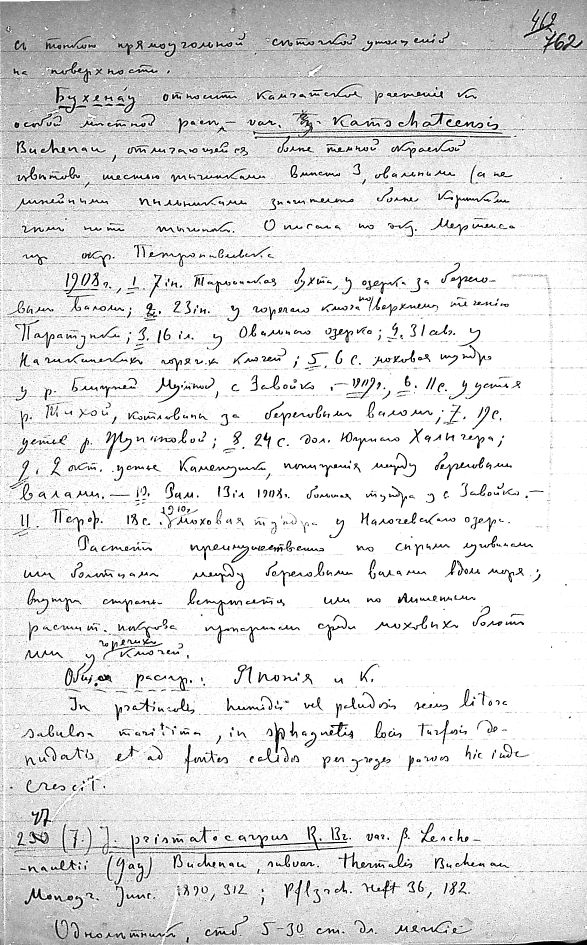 462
762
съ тонкою прямоугольной сѣточкой утолщенiй
на поверхности.
Бухена́у относитъ камчатское растенiе къ
особой мѣстной расѣ, – var. Kamschatcensis
Buchenau, отличающейся болѣе темной окраской
цвѣтовъ, шестью тычинками вмѣсто 3, овальными (а не
линейными пыльниками значительно болѣе короткими
чѣмъ нити тычинокъ. Описана по экз. Мертенса
изъ окр. Петропавловска
1908 г., 1. 7 iн. Тарьинская бухта, у озерка за берего-
вымъ валомъ; 2. 23 iн. у горячаго ключа по верхнему теченiю
Паратунки; 3. 16 iл. у Овальнаго озерка; 4. 31 авг. у
Начикинскихъ горячихъ ключей; 5. 6 с. моховая тундра
у р. с. Завойко. – 1909 г., 6. 11 с. у устья
р. Тихой, котловина за береговымъ валомъ; 7. 19 с.
устье р. Жупановой; 8. 24 с. дол. Юрнаго Халыгера;
9. 2 окт. устье Каменушки, пониженiя между береговыми
валами. – 10. Рам. 13 iл 1908 г. большая тундра у с. Завойко. –
11. Перф. 18 с. 1910 г. моховая тундра у Налочевскаго озера.
Растетъ преимущественно по сырымъ луговинамъ
или болотцамъ между береговыми валами вдоль моря;
внутри страны встрѣчается или по лишеннымъ
растит. покрова среди моховыхъ болотъ
или у горячихъ ключей.
Общее распр.: Японiя и К.
In pratinculis humidis vel paludosis secus litora
sabulosa maritima, in sphagnetis locis turfosis de-
nudatis et ad fontes calidos per greges parvos hic inde
crescit.
47
230 (7.) J. prismatocarpus R. Br. var. β. Lesche-
-naultii (Gay) Buchenau, subvar. thermalis Buchenau
Monogr. Junc. 1890, 312; Pflzrch. Heft 36, 182.
Однолѣтникъ, стеб. 5-30 cm. дл. мягкiе